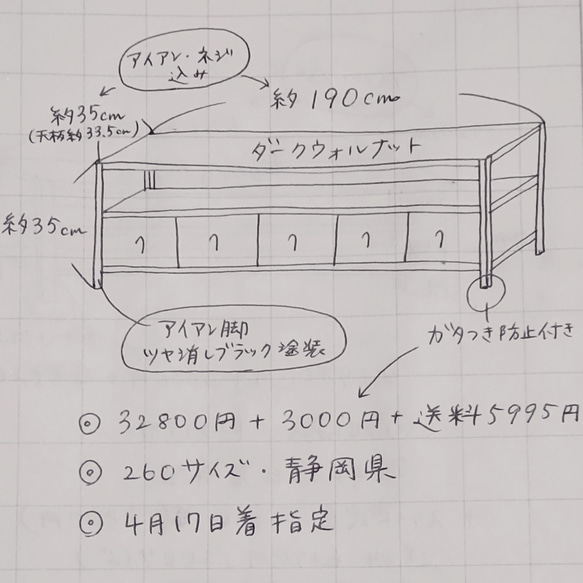 アイアン・ネジ
込み
約35cm
(天板約33.5cm)
約190cm
ダークウォルナット
約35cm
アイアン脚
ツヤ消しブラック塗装
ガタつき防止付き
◎ 32800円 + 3000円 + 送料5995円
◎ 260サイズ・静岡県
◎ 4月17日着指定